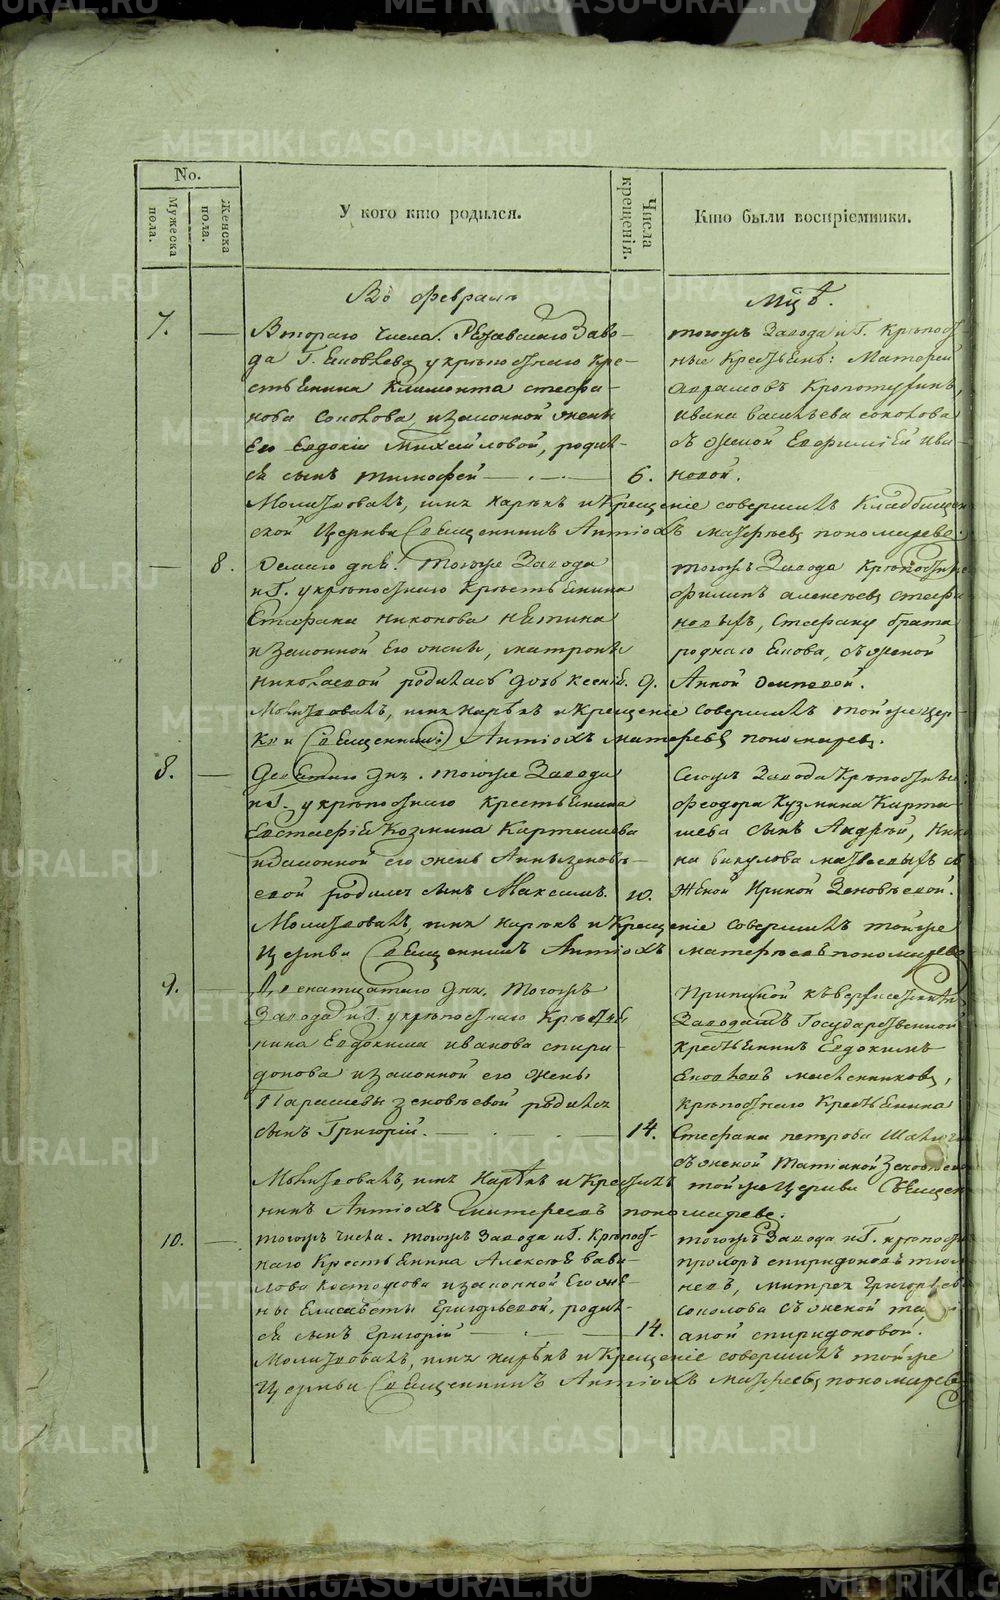 No.
Мужеска пола.
Женска пола.
У кого кто родился.
Числа крещенія.
Кто были воспріемники.
Въ февралѣ
Мцѣ.
7.
Втораго числа. Режевскаго Заво-
да Г. Яковлева у крѣпостнаго Кре-
стьянина Климонта стефа-
нова Соколова, и законной жены
Его Евдокіи Михайловой, родил-
ся сынъ Тимофей
6.
тогожъ Завода и Г. Крѣпост
ные Крестьяне: Матфей
Аврамовъ Кропотухинъ,
Ивана Васильева соколова
съ женой Евфиміей Ива-
новой.
Молитвовалъ, имя нарѣкъ и Крещеніе совершилъ Кладбищен
ской Церкви Священникъ Антіохъ матфеевъ пономаревъ.
8.
Осмаго дня. тогоже Завода
и Г. у крѣпостнаго Крестьянина
Стефана никонова
и законной Его жены, матроны
николаевой родилась дочь Ксенія.
9.
тогожъ Завода Крѣпостные
филипъ алексеевъ стефа
новыхъ, Стефана брата
роднаго Якова, съ женой
Анной Осиповой.
Молитвовалъ, имя нарѣкъ и Крещеніе совершилъ тойже цер-
кви Священникъ Антіохъ матфеевъ пономаревъ.
8.
Девятаго дня. тогоже Завода
и Г. у крѣпостнаго крестьянина
Евстафія Козмина Карташева
и законной его жены Анны зеновь-
евой родился сынъ Максимъ.
10.
Тогожъ Завода Крѣпостные:
Феодора Кузмина Карта-
шева сынъ Андрей,
на викулова матвеевыхъ съ
женой Ириной Зеновьевой.
Молитвовалъ, имя нарѣкъ и Крещеніе совершилъ тойже
Церкви Священникъ Антіохъ матфеевъ пономаревъ
9.
Двенатцатаго дня. тогожъ
Завода и Г. у крѣпостнаго Крестья
нина Евдокима иванова спири-
донова и законной его жены
Парасковьи зеновьевой родился
сынъ Григорій.
14.
Приписной къ
Заводамъ Государственной
крестьянинъ Евдокимъ
Яковлевъ масленниковъ,
крѣпостнаго Крестьянина
Стефана петрова
съ женой Татіаной Зеновьево
Молитвовалъ, имя нарѣкъ и Крестилъ тойже Церкви Священ
никъ Антіохъ матфеевъ пономаревъ.
10.
тогожъ числа. тогожъ Завода и Г. Крѣпост-
наго Крестьянина Алексѣя вави-
лова Костоусова и законной Его же-
ны Елисаветы Григорьевой, родил-
ся сынъ Григорій
14.
тогожъ Завода и Г. крѣпостн
прохоръ спиридоновъ
митрея Григорьева
соколова съ женой та
аной спиридоновой.
Молитвовалъ, имя нарѣкъ и Крещеніе совершилъ тойже
Церкви Священникъ Антіохъ матфеевъ пономаревъ